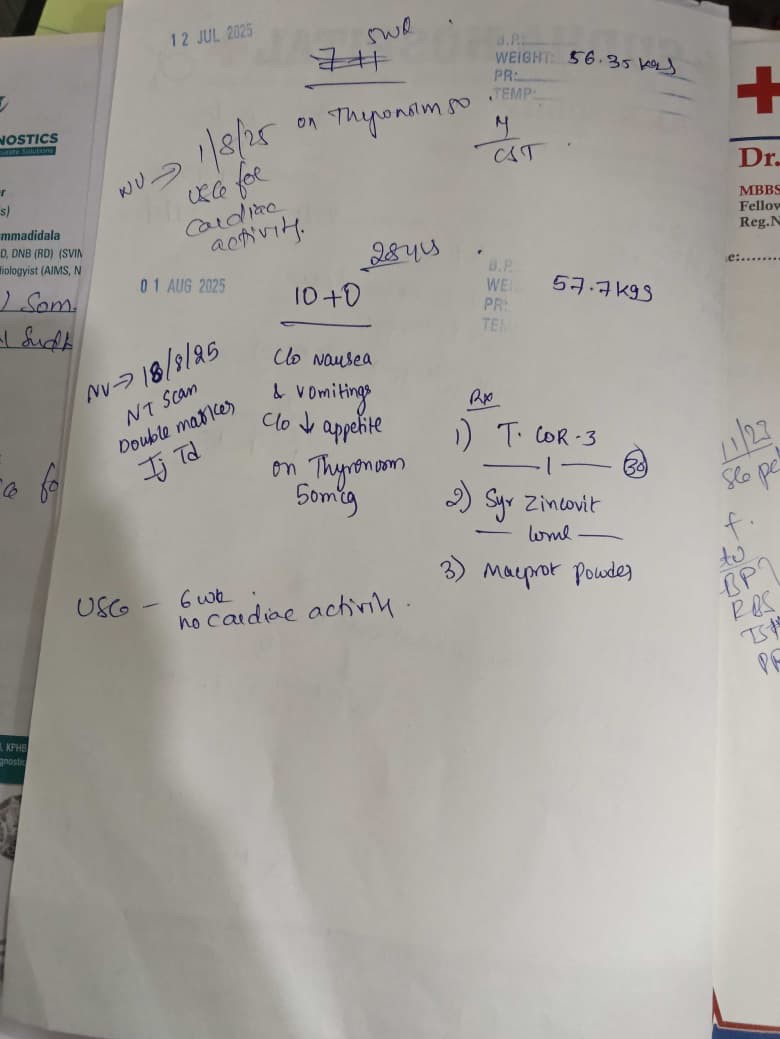 12 JUL 2025
5wk
7+
B.P.:
WEIGHT: 56.35 kgs
PR:
TEMP:
on Thyronorm 50
CST
NV → 1/8/25
USG for
cardiac
activity.
28 yrs
01 AUG 2025
10+0
B.P.
WE 57.7 kgs
PR:
TE
NV → 18/8/25
NT Scan
Double marker
Ij Td
C/o Nausea
& vomitings
C/o ↓ appetite
on Thyronorm
50mcg
Rx
1) T. COR-3
— 1 — 30
2) Syr Zincovit
— 10ml —
3) Macprot Powder
USG - 6wk
no cardiac activity.
NOSTICS
urate Solutions
s)
mmadidala
D, DNB (RD) (SVIM
iologyist (AIMS, N
Som
Sudh
fo
, KPHB
gnostic
Dr.
MBBS
Fellow
Reg.N
e:........
11/23
f.
BP
RBS